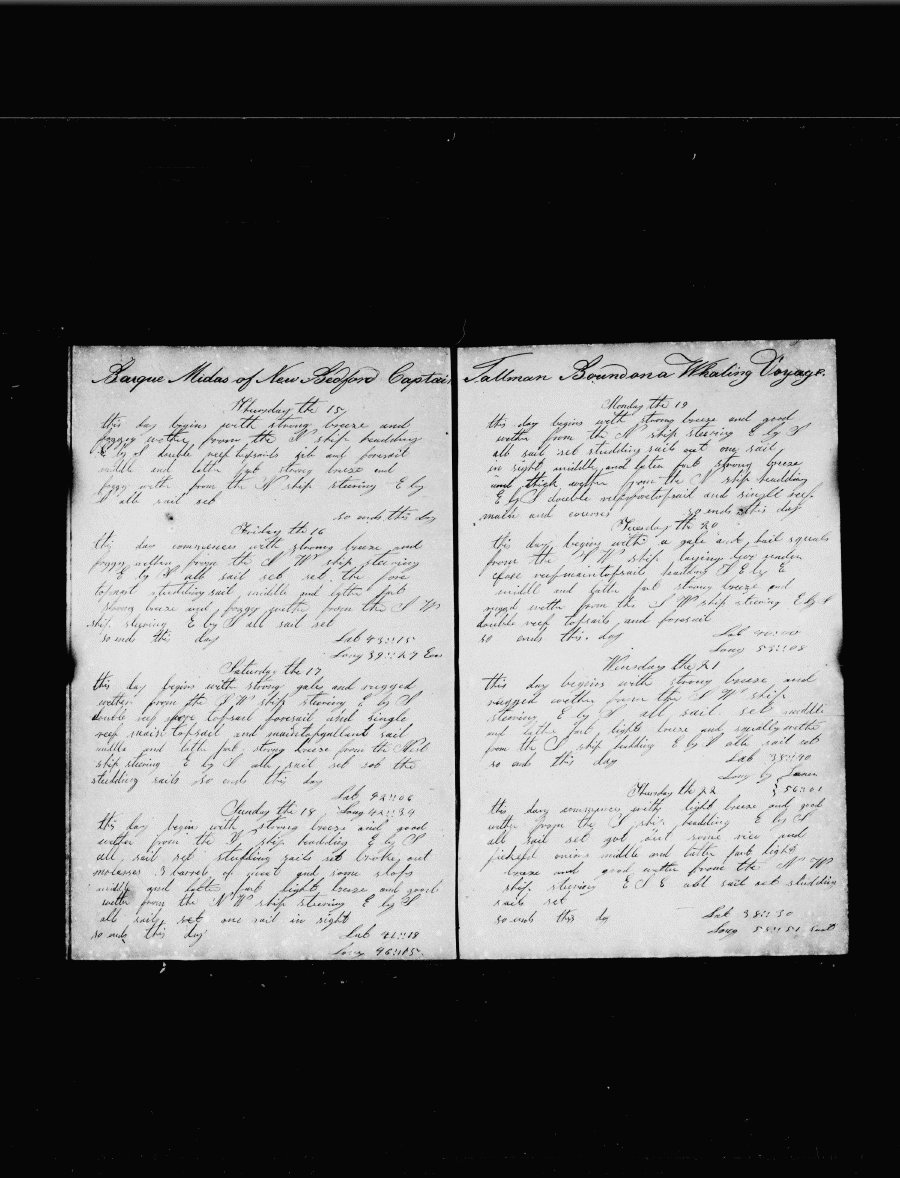 Barque Midas of New Bedford Captain Tallman Bound on a Whaling Voyage.
Thursday the 15
this day begins with strong breeze and
foggy wether from the N ship headding
E by S double reep topsails jib and foresail
middle and latter part strong breeze and
foggy weth from the N ship steering E by
S all sail set
so ends this day
Friday the 16
this day commences with strong breeze and
foggy wether from the S W ship steering
E by S all sail set set the fore
topmast studding sail middle and latter part
strong breeze and foggy wether from the S W
ship steering E by S all sail set
so ends this day Lat 43::15
Long 39::27 Eas
Saturday the 17
this day begins with strong gales and rugged
wether from the S W ship steering E by S
double reep fore topsail foresail and single
reep main topsail and maintopgallant sail
middle and latter part strong breeze from the West
ship steering E by S all sail set set the
studding sails so ends this day
Lat 42::06
Long 42::34
Sunday the 18
this day begins with strong breeze and good
wether from the ship headding E by S
all sail set studding sails set broke out
molasses 3 barels of meat and some slops
middle and latter part light breeze and good
wether from the N W ship steering E by S
all sail set one sail in sight
so ends this day Lat 41::18
Long 46::15
Monday the 19
this day begins with strong breeze and good
wether from the N ship steering E by S
all sail set studding sails out one sail
in sight middle and latter part strong breeze
and thick wether from the N ship headding
E by S double reep foretopsail and single reep
main and courses so ends this day
Tuesday the 20
this day begins with a gale and hail squals
from the S W ship laying under
close reep maintopsail headding S E by E
middle and latter part strong breeze and
rugged wether from the S W ship steering E by S
double reep topsails and foresail
so ends this day Lat 40::00
Long 53::08
Wensday the 21
this day begins with strong breeze and
rugged wether from the S W ship
steering E by S all sail set middle
and latter part light breeze and squally wethe
from the S ship hedding E by S all sail set
so ends this day Lat 39::40
Long by Lunar
56::01
Thursday the 22
this day commences with light breeze and good
wether from the S ship hedding E by S
all sail set got out some rice and
pickeld onions middle and latter part light
breeze and good wether from the N W
ship steering E S E all sail set studding
sails set
so ends this day Lat 38::30
Long 58::51 East